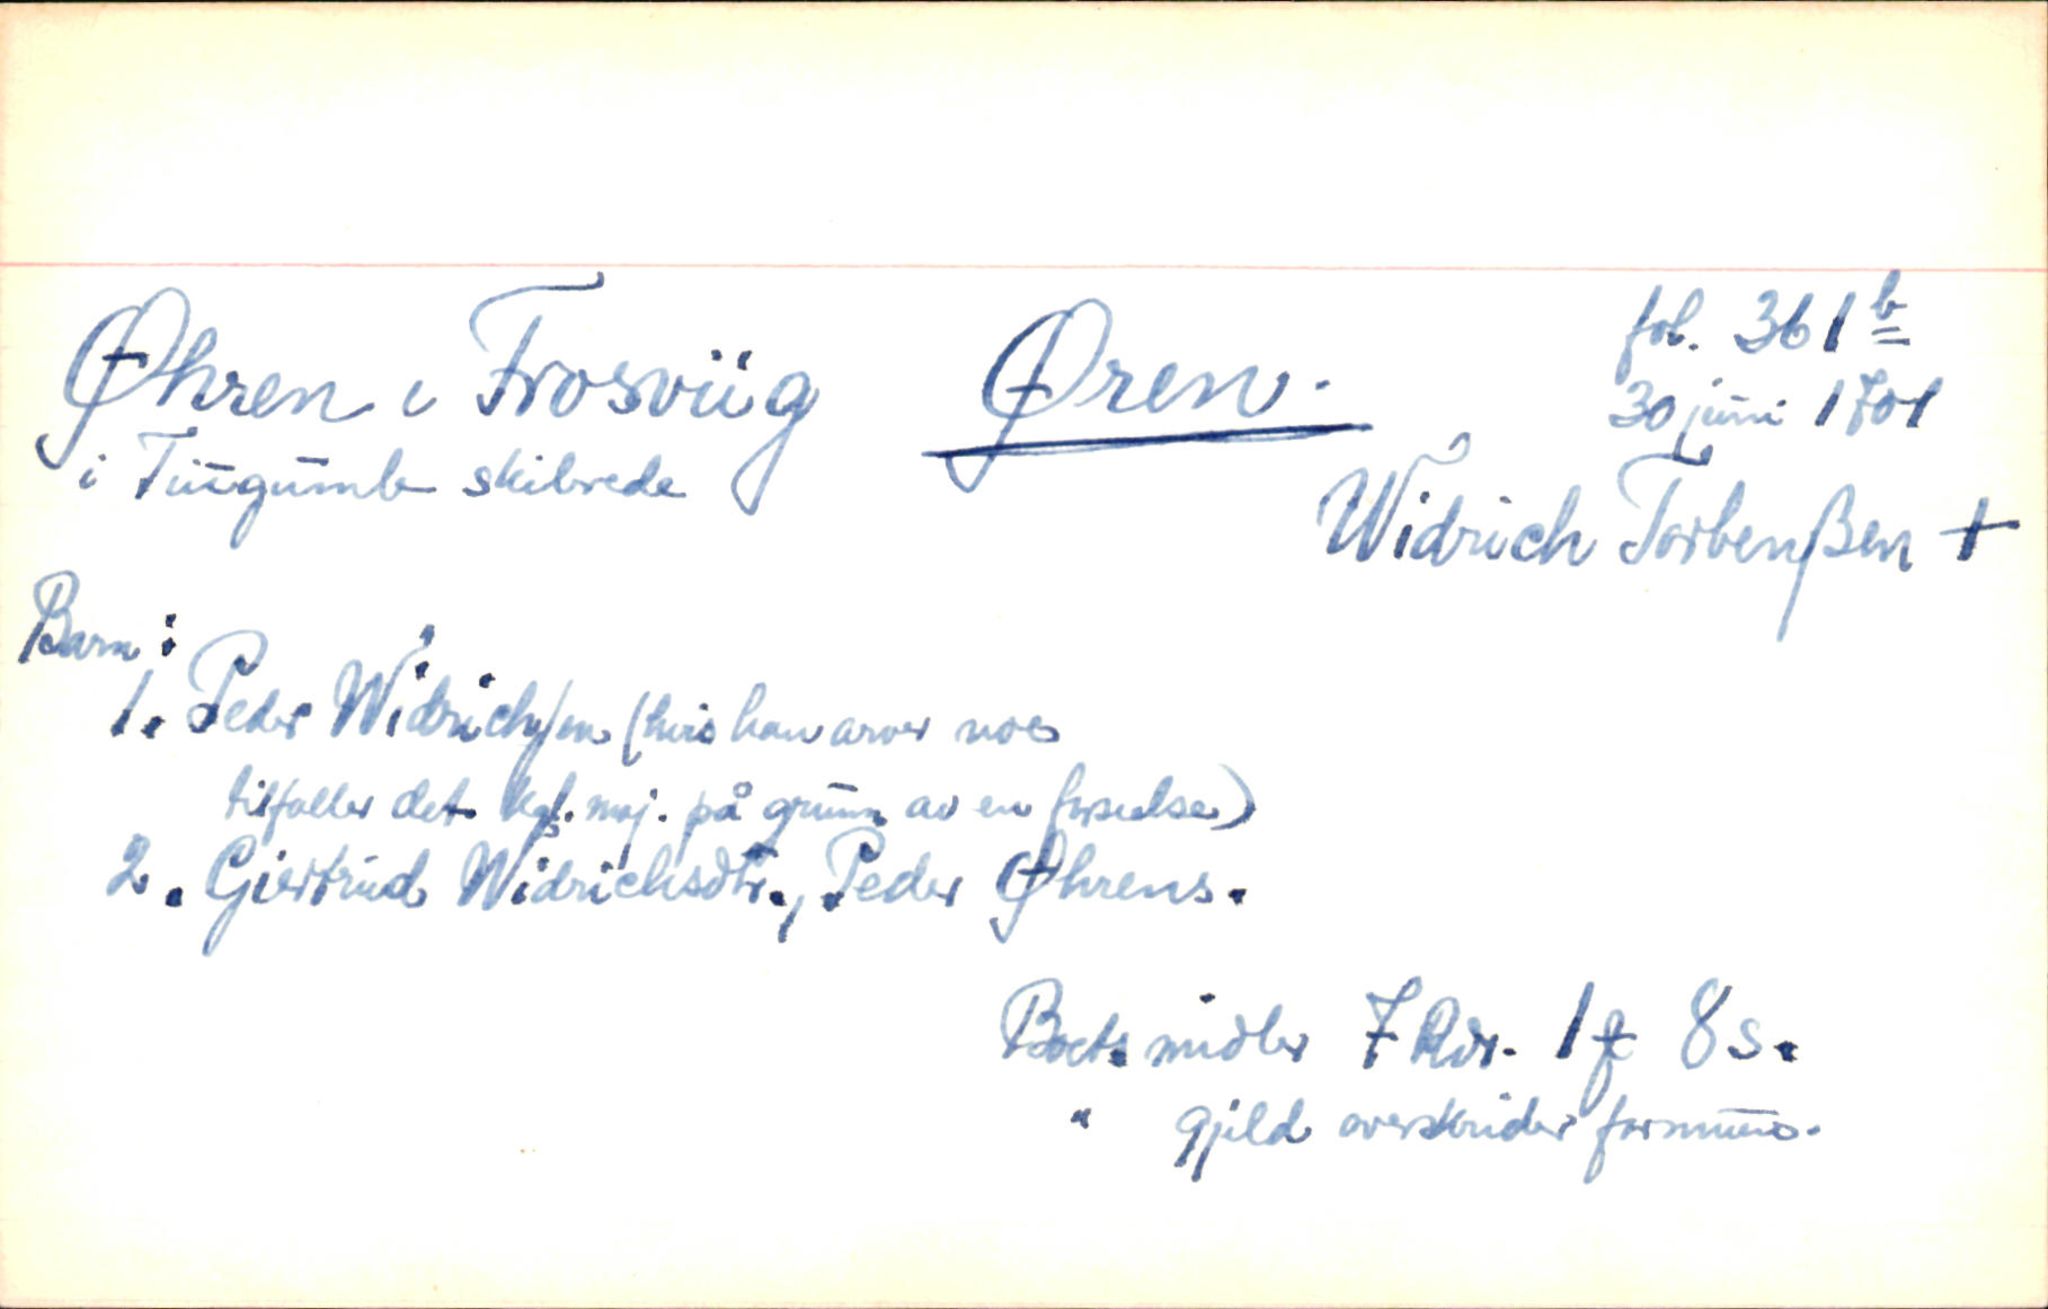 Øhren i Frosviig Øren.
fol. 361 b
30 juni 1701
i Tuugumb skibrede
Widrich Torbenßen +
Barn:
1. Peder Widrichsen (hvis han arver noe
tilfaller det kgl. maj. på grunn av en forseelse)
2. Giertrud Widrichsdtr., Peder Øhrens.
Boets midler 7 Rdr. 1 f 8 s.
" gjeld overskrider formuen.